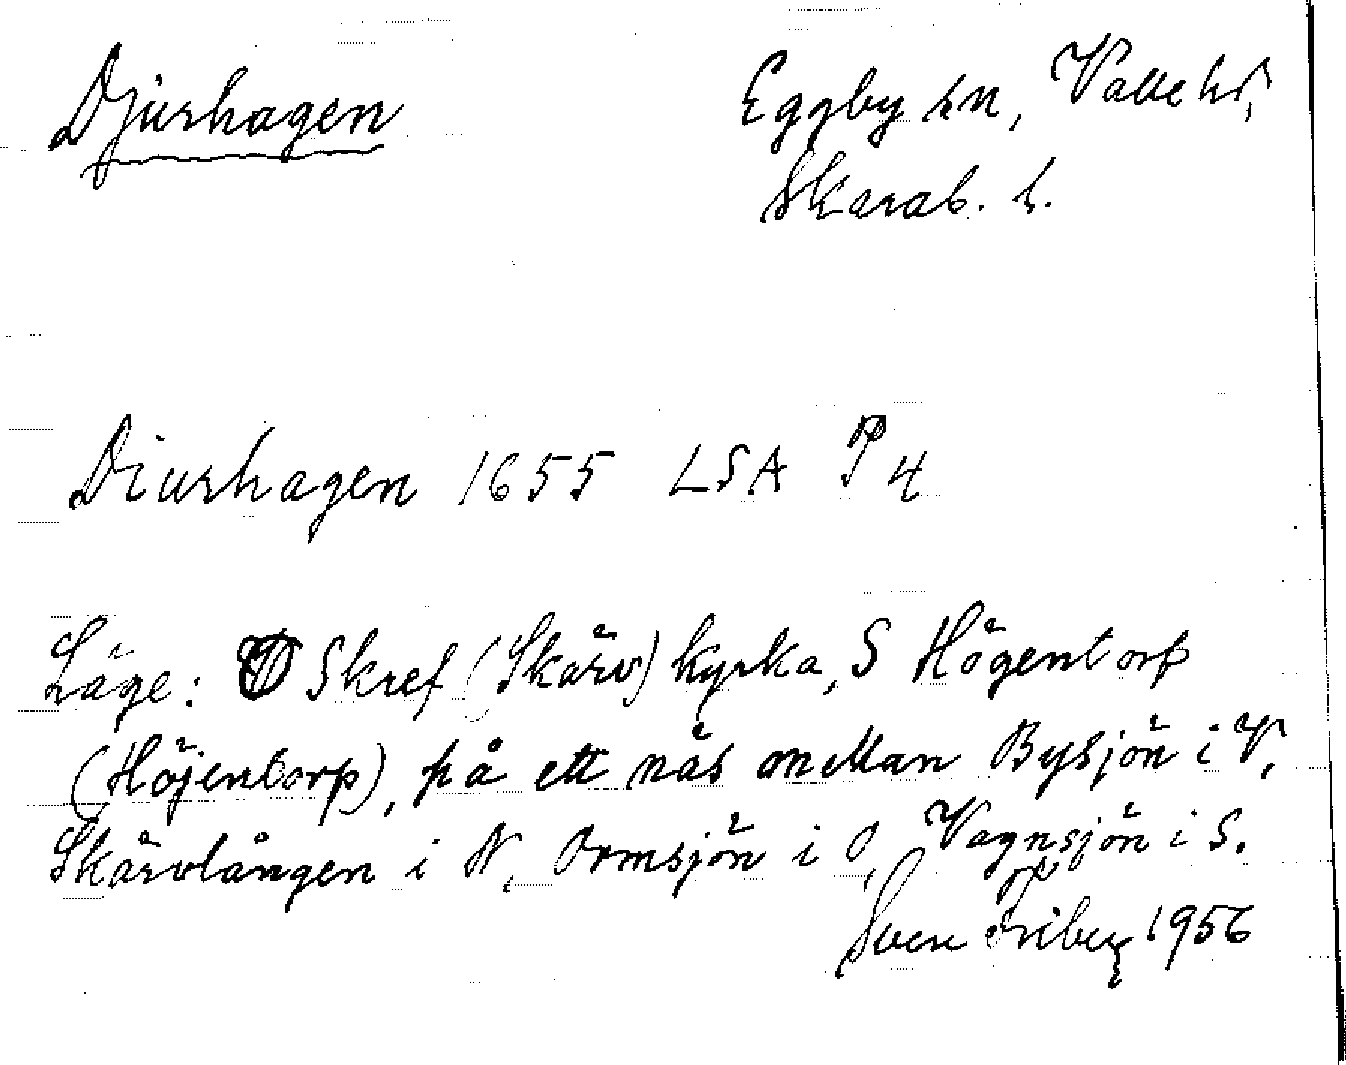 Djurhagen
Eggby sn, Valle hd,
Skarab. l.
Diurhagen 1655 LSA P 4
Läge: O Skref (Skärv) kyrka, S Högentorp
(Höjentorp), på ett näs mellan Bysjön i V,
Skärvlången i N, Ormsjön i O, Vagnsjön i S.
Sven Friberg 1956